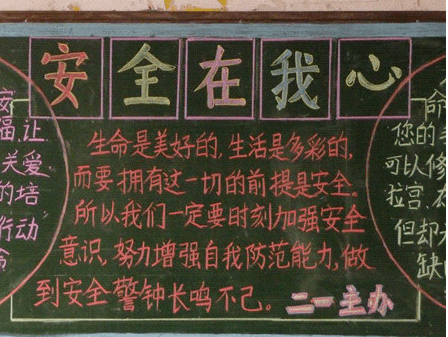 安全在我心
生命是美好的,生活是多彩的,
而要拥有这一切的前提是安全。
所以我们一定要时刻加强安全
意识,努力增强自我防范能力,做
到安全警钟长鸣不己。
二一主办
福,让
关爱
的培
行动
命
您的
可以修
拉宫,
但却
缺